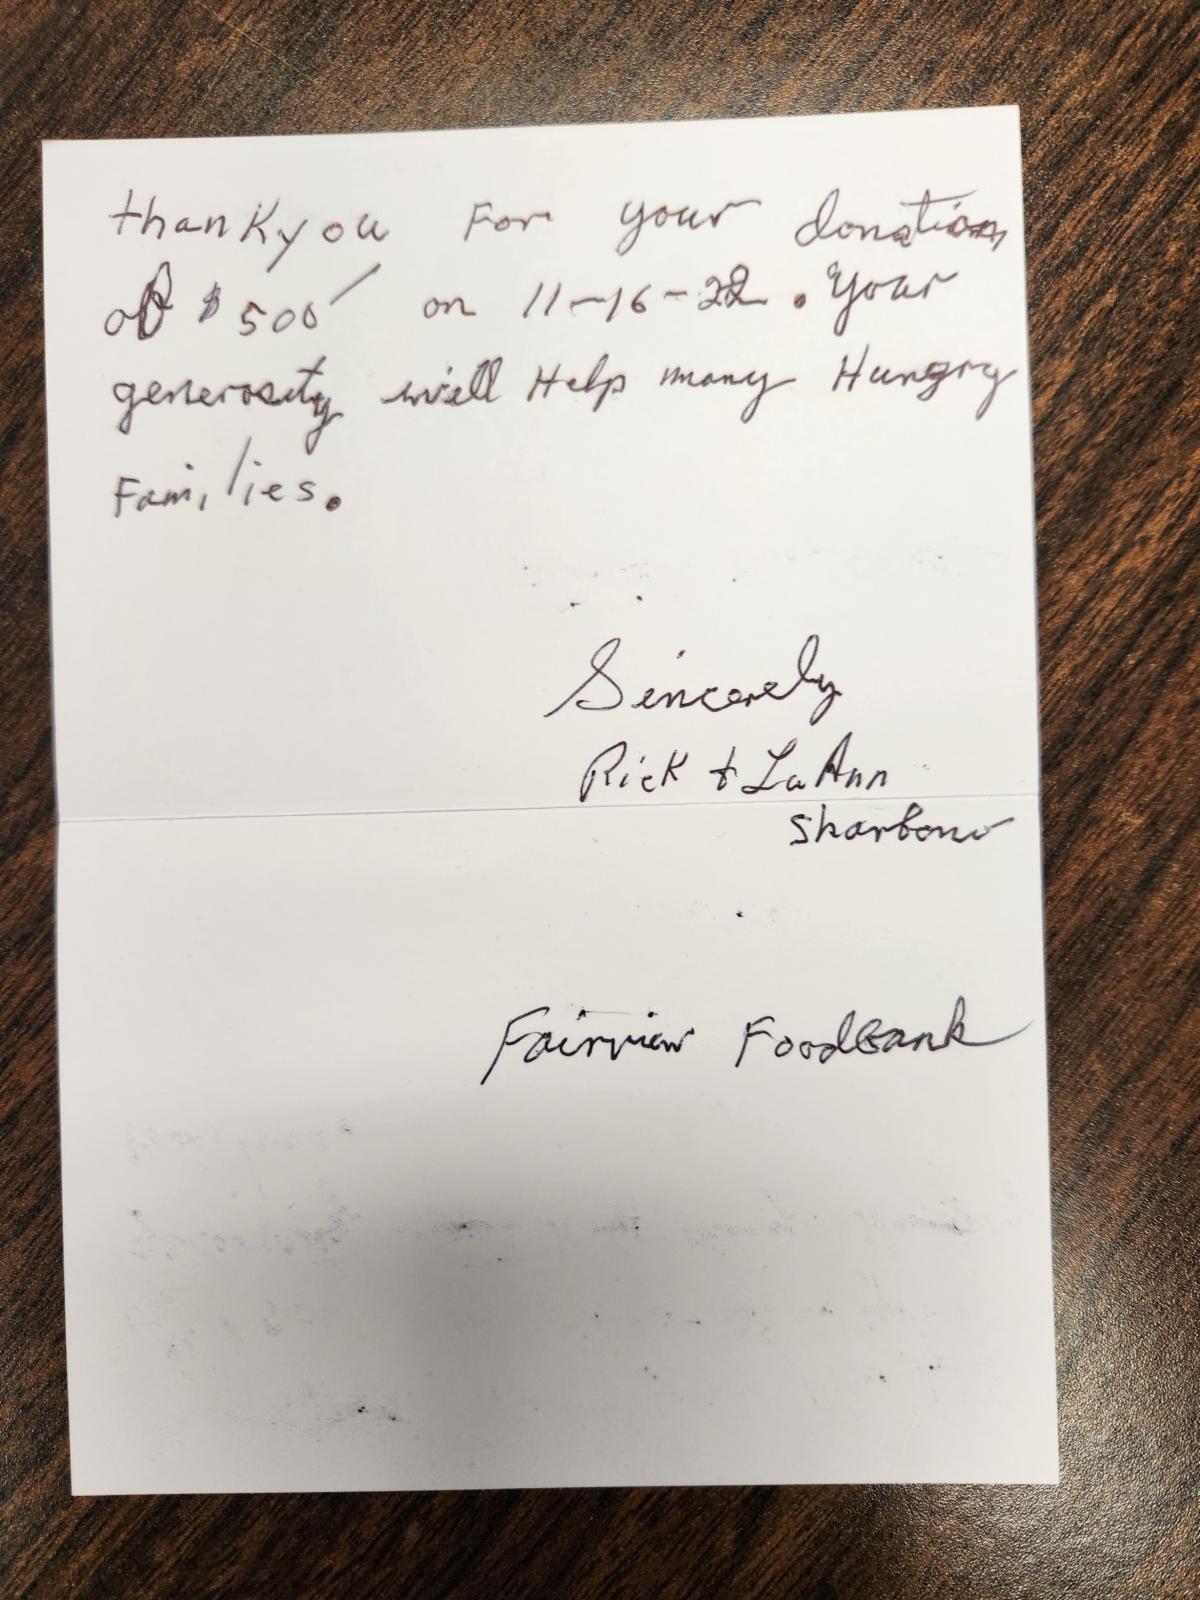 thankyou For your donation
of $500/ on 11-16-22. Your
generosity will Help many Hungry
Families.
Sincerely
Rick + LuAnn
Sharbono
Fairview Foodbank